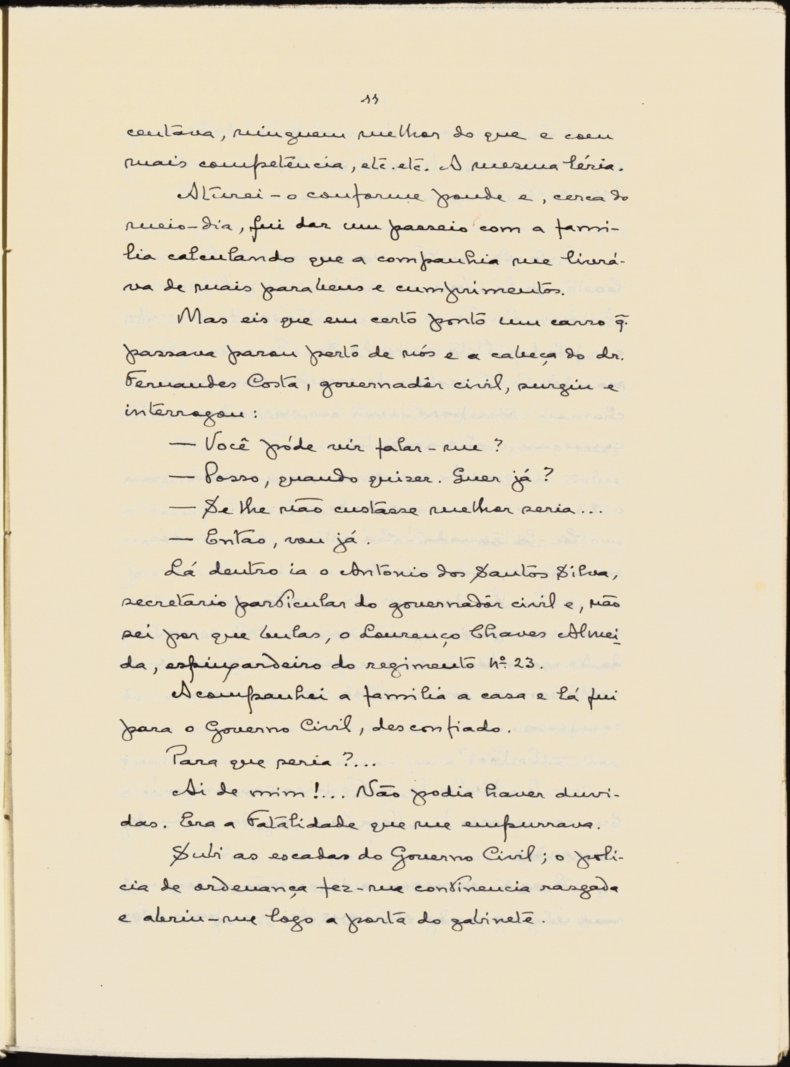 11
centava, ninguem melhor do que e com
mais competência, etc. etc. A mesma léria.
Aturei-o conforme poude e, cerca do
meio-dia, fui dar um passeio com a fami-
lia calculando que a companhia me livrá-
va de mais parabens e cumprimentos.
Mas eis que em certo ponto um carro q̃.
passava parou perto de nós e a cabeça do dr.
Fernandes Costa, governadôr civil, surgiu e
interrogou:
— Você póde vir falar-me?
— Posso, quando quizer. Quer já?
— Se lhe não custasse melhor seria...
— Então, vou já.
Lá dentro ia o Antonio dos Santos Silva,
secretario particular do governadôr civil e, não
sei por que bulas, o Lourenço Chaves Almei-
da, espinxardeiro do regimento nº 23.
Acompanhei a familia a casa e lá fui
para o Governo Civil, desconfiado.
Para que seria?...
Ai de mim!... Não podia haver duvi-
das. Era a Fatalidade que me empurrava.
Subi as escadas do Governo Civil; o poli-
cia de ordenança fez-me continencia rasgada
e abriu-me logo a porta do gabinete.